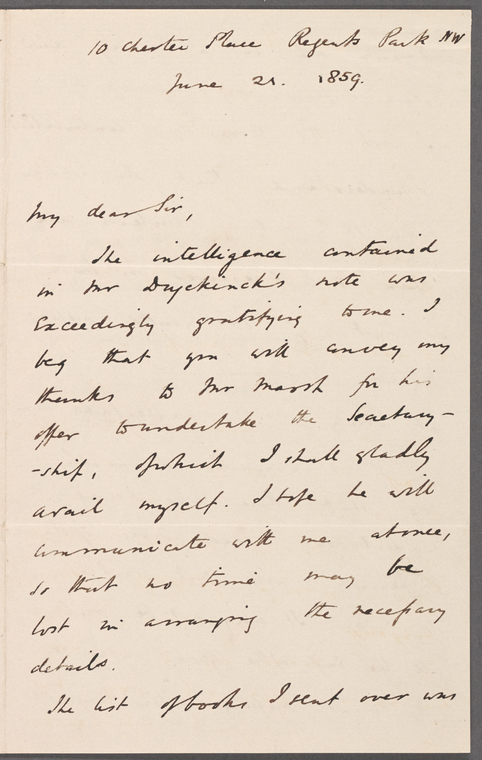 10 Chester Place Regents Park NW
June 21. 1859.
My dear Sir,
The intelligence contained
in Mr Duyckinck's note was
exceedingly gratifying to me. I
beg that you will convey my
thanks to Mr Marsh for his
offer to undertake the Secretary-
-ship, of which I shall gladly
avail myself. I hope he will
communicate with me at once,
so that no time may be
lost in arranging the necessary
details.
The list of books I sent over was